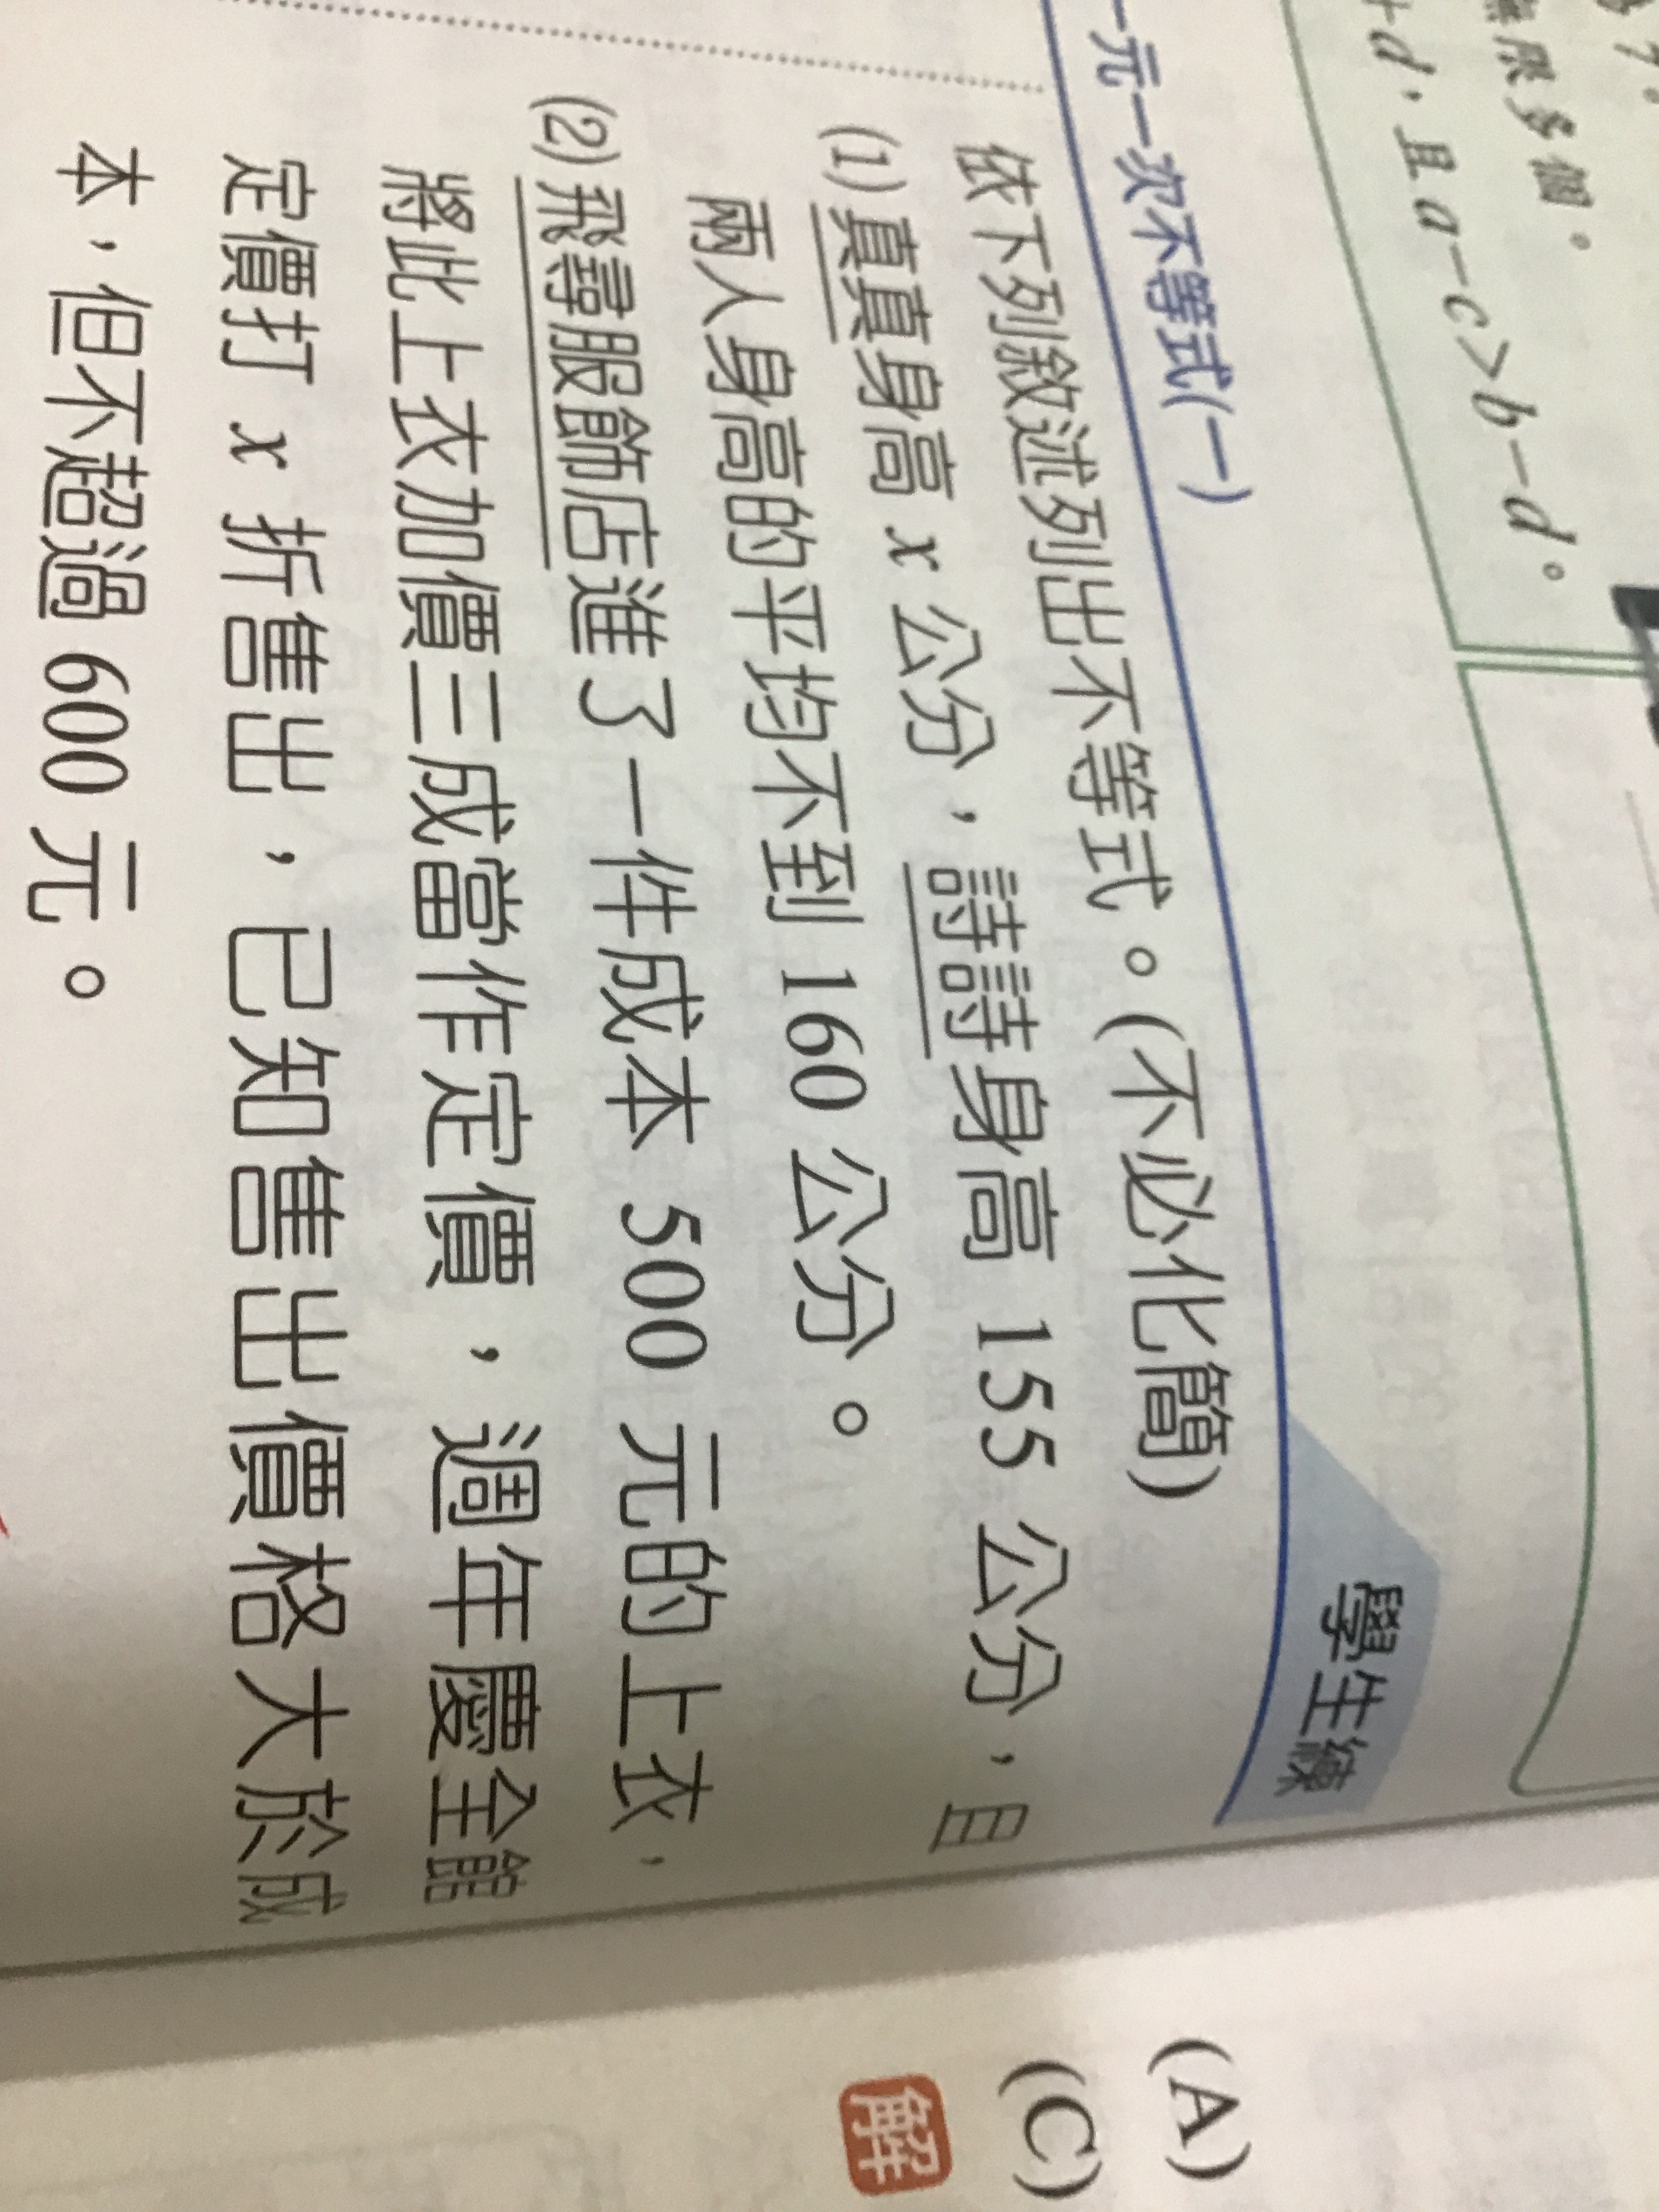 無限多個。
+d,且 a-c>b-d。
一元一次不等式(一)
學生練
依下列敘述列出不等式。(不必化簡)
(1) 真真身高 x 公分,詩詩身高 155 公分,且
兩人身高的平均不到 160 公分。
(2) 飛尋服飾店進了一件成本 500 元的上衣,
將此上衣加價三成當作定價,週年慶全館
定價打 x 折售出,已知售出價格大於成
本,但不超過 600 元。
(A)
(C)
解